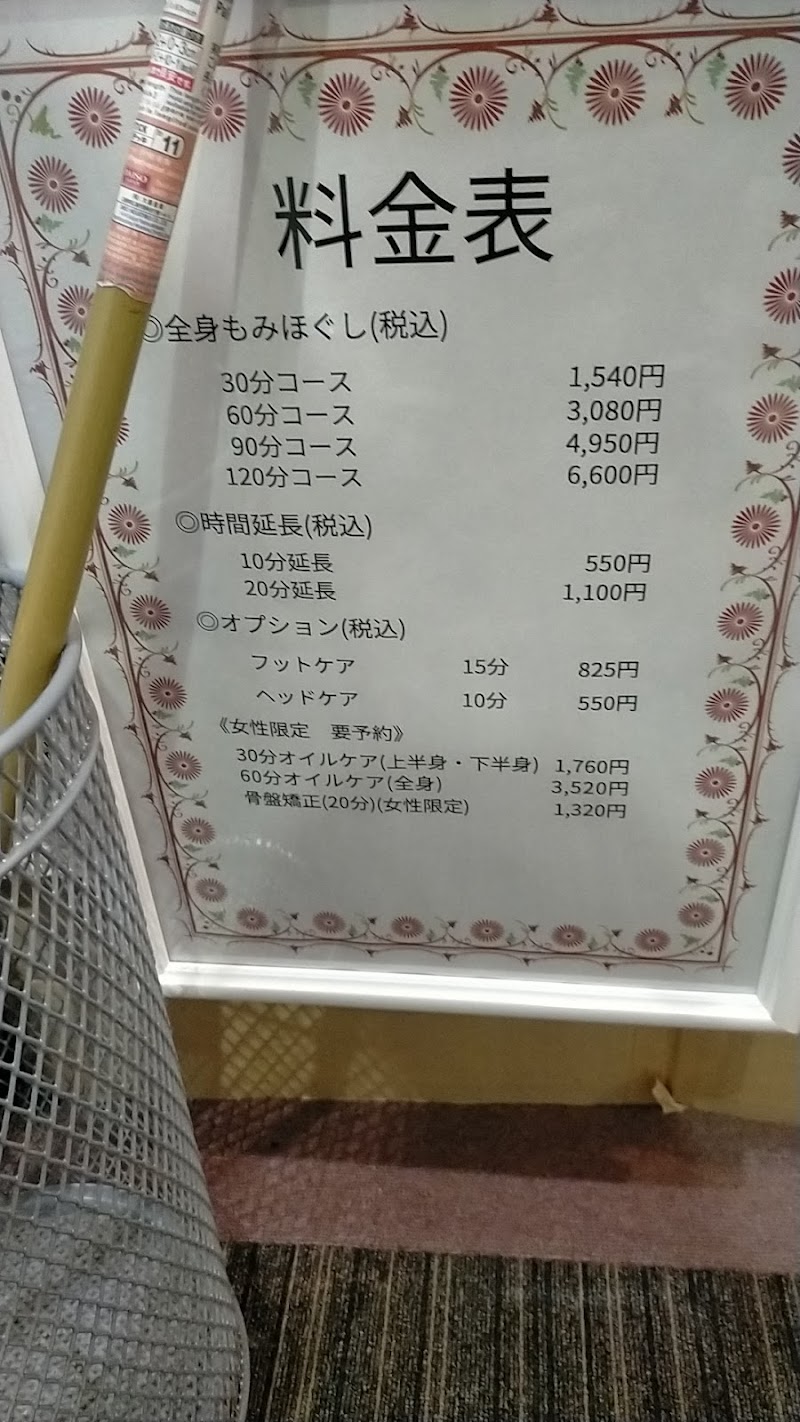 料金表
◎全身もみほぐし(税込)
30分コース 1,540円
60分コース 3,080円
90分コース 4,950円
120分コース 6,600円
◎時間延長(税込)
10分延長 550円
20分延長 1,100円
◎オプション(税込)
フットケア 15分 825円
ヘッドケア 10分 550円
《女性限定 要予約》
30分オイルケア(上半身・下半身) 1,760円
60分オイルケア(全身) 3,520円
骨盤矯正(20分)(女性限定) 1,320円
11